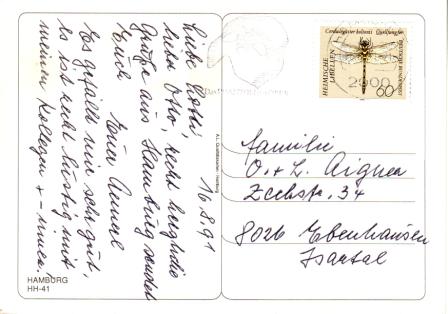 16.8.91
Liebe Lodi
lieber Otto, recht herzliche
Grüße aus Hamburg sendet
Euch
Eure Anneli
Es gefällt mir sehr gut.
Es ist recht lustig mit
meinen Kollegen + -innen.
HAMBURG
HH-41
Cordulegaster boltoni Quelljungfer
HEIMISCHE
LIBELLEN
DEUTSCHE BUNDESPOST
60
2000
Familie
O. + L. Aigner
Zechstr. 34
8026 Ebenhausen
Isartal